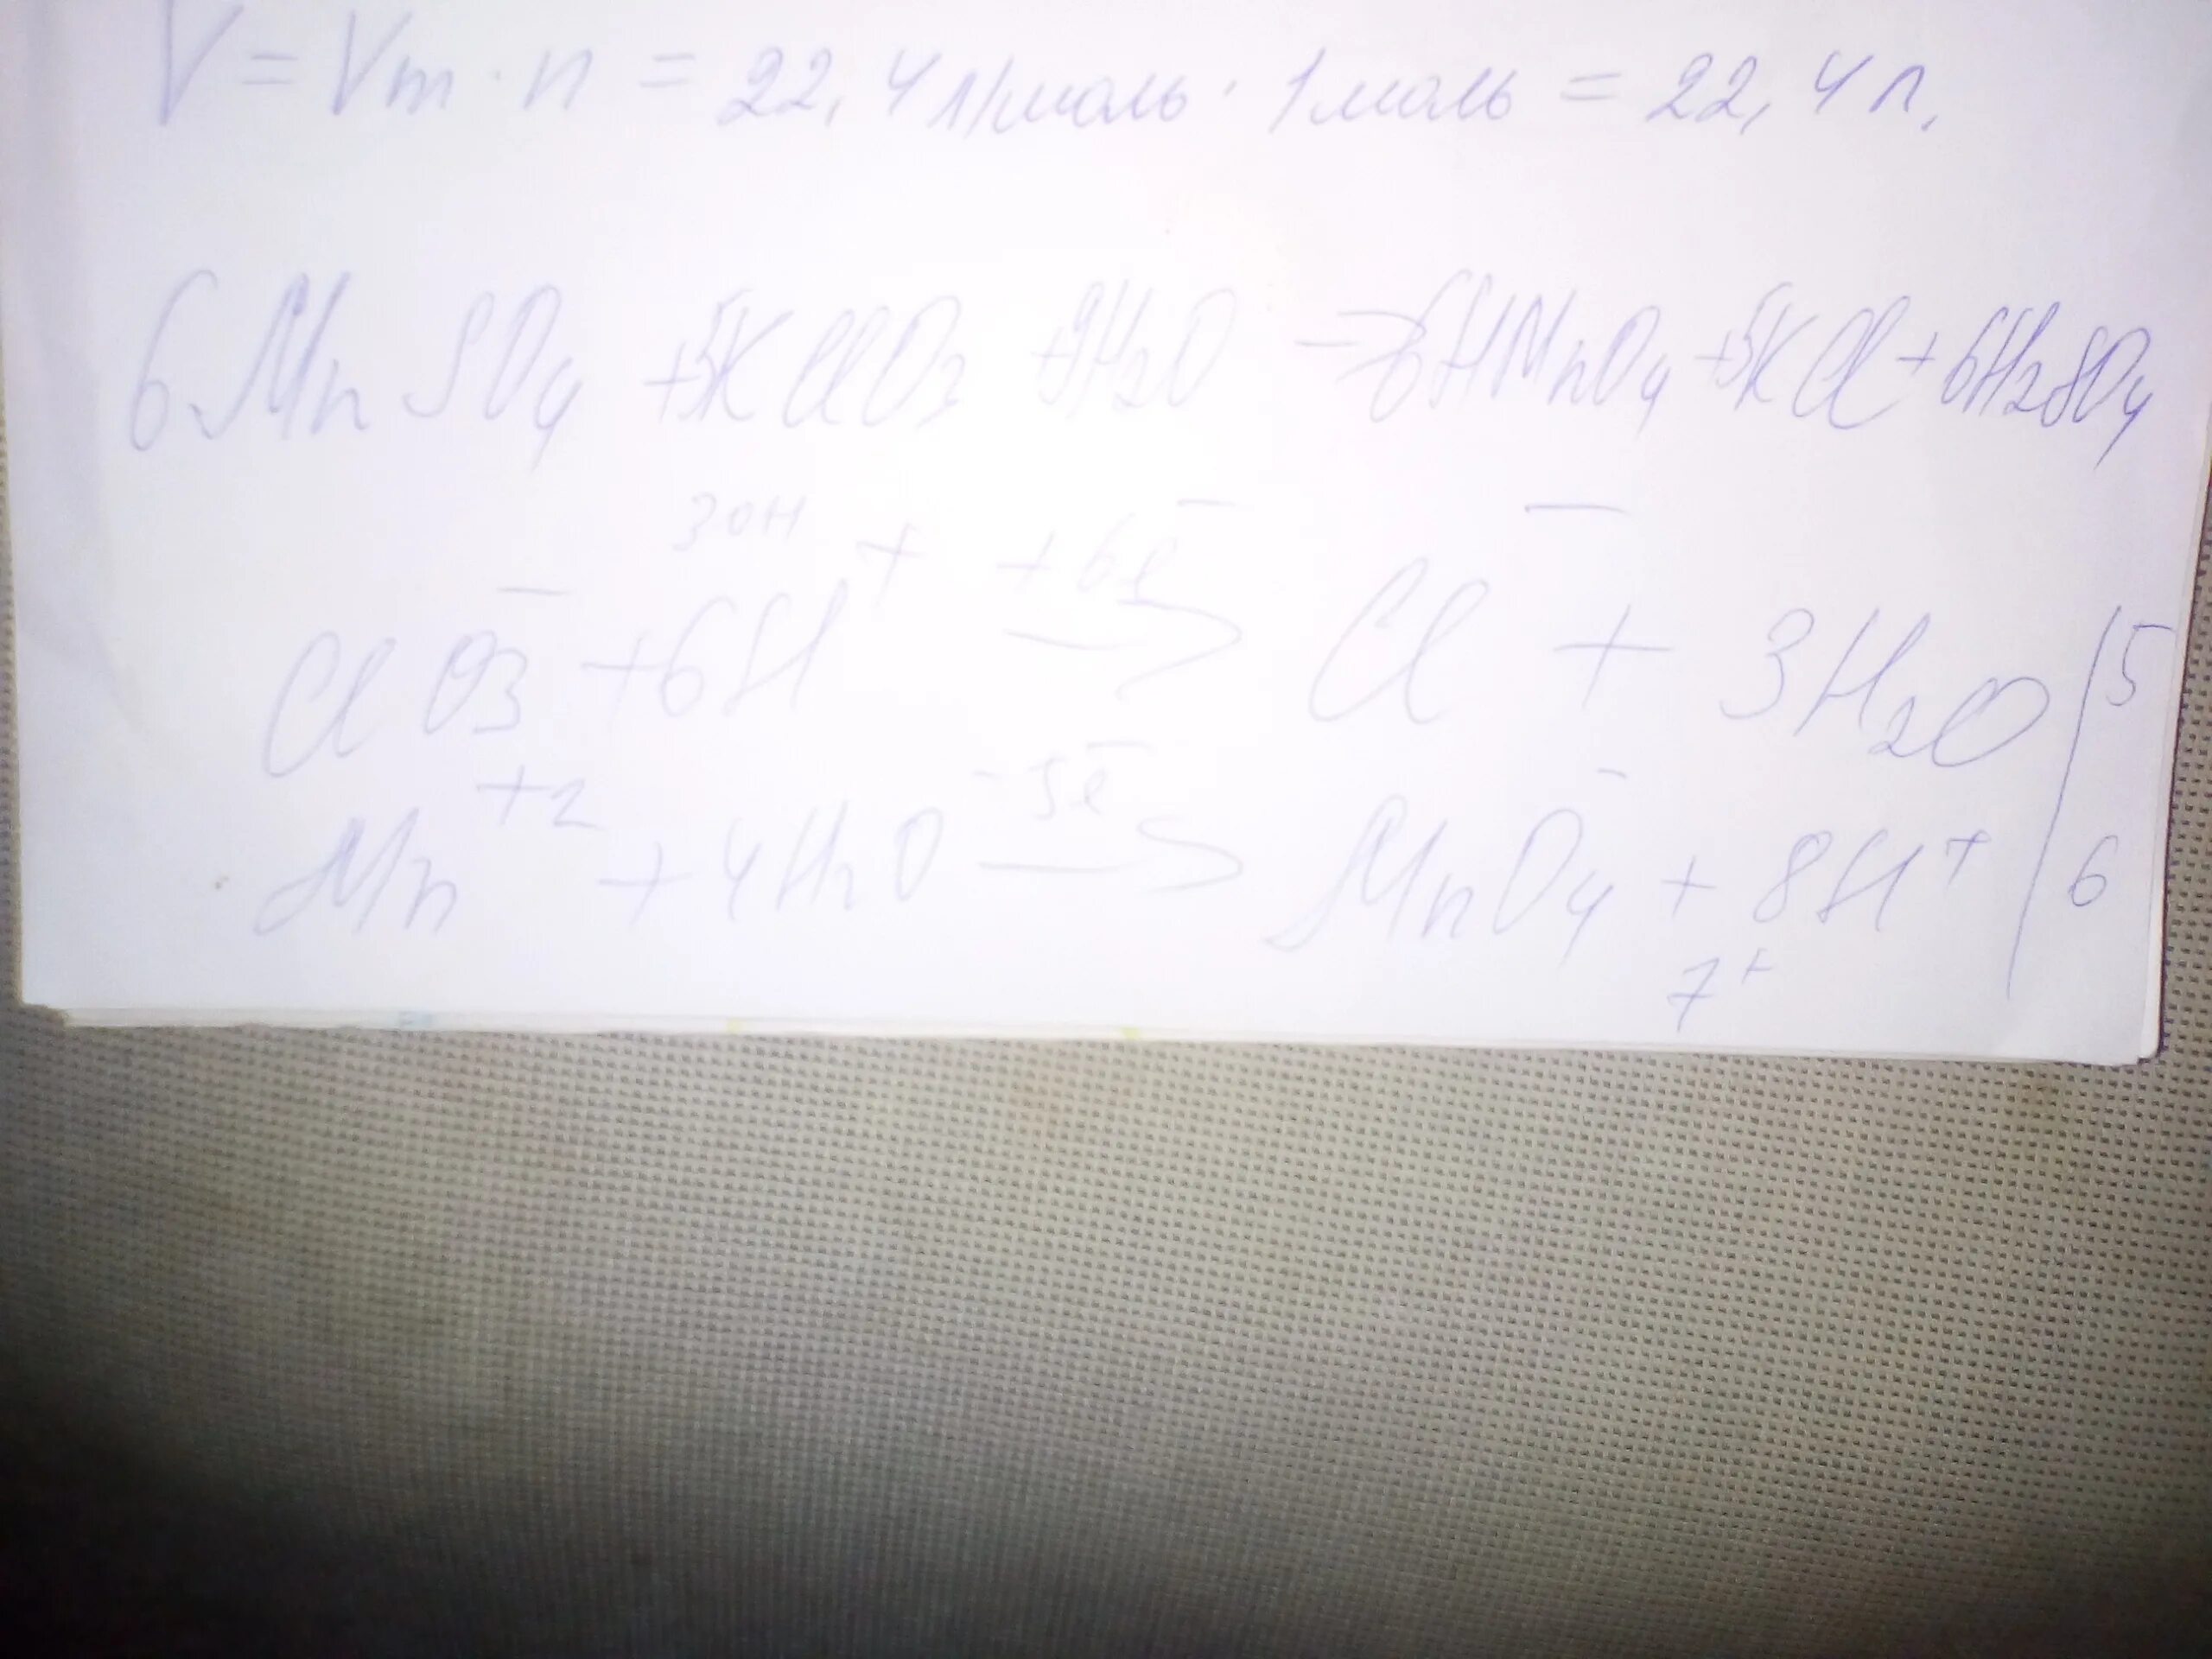 V = Vm · n = 22,4 л/моль · 1 моль = 22,4 л.
6MnSO4 + 5KClO3 + 9H2O → 6HMnO4 + 5KCl + 6H2SO4
3OH
ClO3⁻ + 6H⁺ +6ē → Cl⁻ + 3H2O | 5
Mn⁺² + 4H2O -5ē → MnO4⁻ + 8H⁺ | 6
7⁺